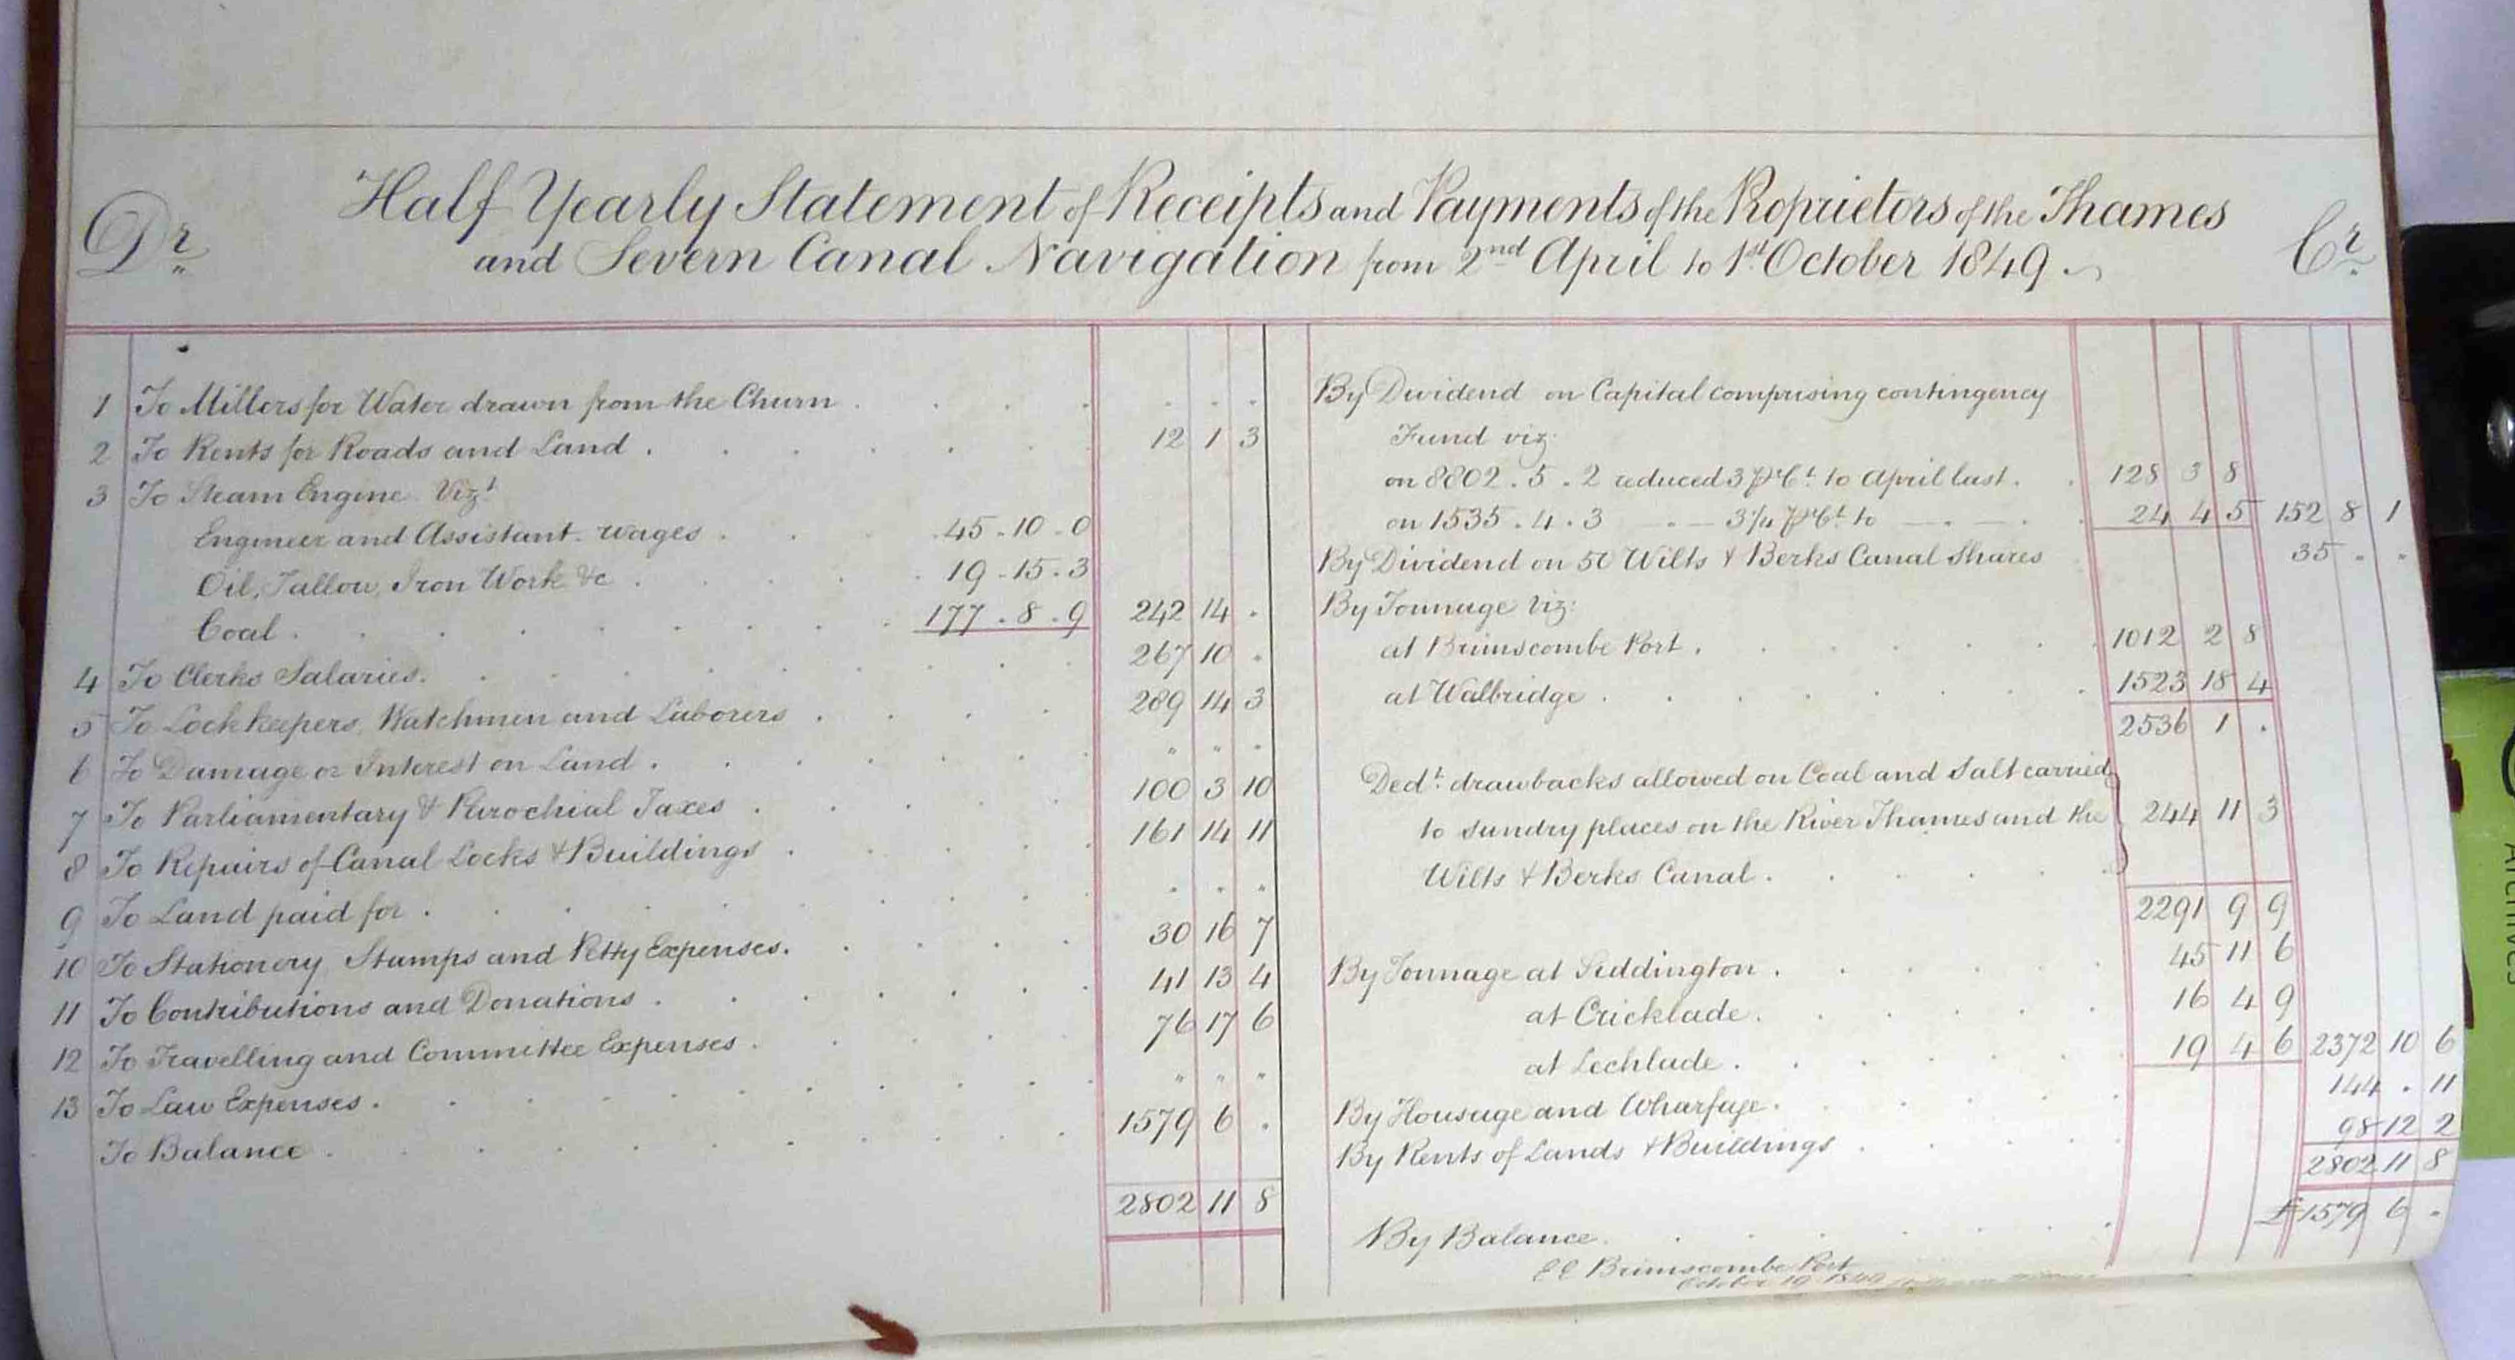 Half Yearly Statement of Receipts and Payments of the Proprietors of the Thames
Dr and Severn Canal Navigation from 2nd April to 1st October 1849 Cr
1 To Millers for Water drawn from the Churn . . . .
2 To Rents for Roads and Land . 12 1 3
3 To Steam Engine Vizt
Engineer and Assistant wages . 45 . 10 . 0
Oil, Tallow, Iron Work &c . 19 . 15 . 3
Coal . 177 . 8 . 9 242 14 .
4 To Clerks Salaries . 267 10 .
5 To Lockkeepers, Watchmen and Laborers . 289 14 3
6 To Damage or Interest on Land . " " "
7 To Parliamentary & Parochial Taxes . 100 3 10
8 To Repairs of Canal Locks & Buildings . 161 14 11
9 To Land paid for . . . "
10 To Stationery, Stamps and Petty Expenses . 30 16 7
11 To Contributions and Donations . 41 13 4
12 To Travelling and Committee Expenses . 76 17 6
13 To Law Expenses . " " "
To Balance . 1579 6 .
2802 11 8
By Dividend on Capital comprising contingency
Fund viz:
on 8802 . 5 . 2 reduced 3 P Ct. to April last . 128 3 8
on 1535 . 4 . 3 " — 3¼ P Ct. to — " — 24 4 5 152 8 1
By Dividend on 50 Wilts & Berks Canal Shares 35 . "
By Tonnage viz:
at Brimscombe Port . 1012 2 8
at Walbridge . 1523 18 4
2536 1 .
Dedt. drawbacks allowed on Coal and Salt carried
to sundry places on the River Thames and the 244 11 3
Wilts & Berks Canal .
2291 9 9
By Tonnage at Siddington . 45 11 6
at Cricklade . 16 4 9
at Lechlade . 19 4 6 2372 10 6
By Housage and Wharfage . 144 . 11
By Rents of Lands & Buildings . 98 12 2
2802 11 8
By Balance . £1579 6 .
EE Brimscombe Port
October 19 1849
ARCHIVES